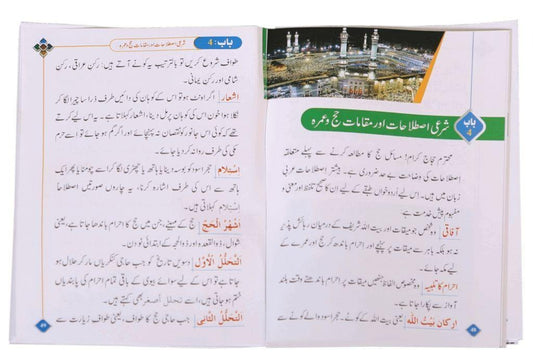 باب
4
شرعی اصطلاحات اور مقامات حج و عمرہ
محترم حجاج کرام! مسائل حج کا مطالعہ کرنے سے پہلے متعلقہ
اصطلاحات کی وضاحت بے حد ضروری ہے۔ بیشتر اصطلاحات عربی
زبان میں ہیں۔ اس لیے اُردو خواں طبقے کے لیے ان کا صحیح تلفظ اور معنی و
مفہوم پیش خدمت ہے۔
آفاقی وہ شخص جو میقات اور بیت اللہ شریف کے درمیان رہائش پذیر
نہ ہو بلکہ باہر سے میقات پر پہنچے اور احرام باندھ کر حج اور عمرے کے
لیے مکہ جائے۔
احرام کا تلبیہ وہ مخصوص الفاظ جنھیں میقات پر احرام باندھتے وقت بلند
آواز سے پکارا جاتا ہے۔
ارکانِ بَیْتُ اللّٰه یعنی بیت اللہ کے کونے۔ حجر اسود والے کونے سے
48
باب: 4
شرعی اصطلاحات اور مقامات حج و عمرہ
طواف شروع کریں تو بالترتیب یہ کونے آتے ہیں: رکن عراقی، رکن
شامی اور رکن یمانی۔
اشعار اگر اونٹ ہو تو اس کے کوہان کی دائیں طرف ذرا سا چیرا لگا کر
نکلا ہوا خون اس کی کوہان پر مل دینا، اشعار کہلاتا ہے۔ یہ اس لیے کرتے
ہیں تاکہ کوئی اس جانور کو نقصان نہ پہنچائے اور اگر گم ہو جائے تو اسے حرم
کی طرف روانہ کر دیا جائے۔
اِسْتِلَام حجر اسود کو بوسہ دینا یا ہاتھ یا چھڑی لگا کر اسے چومنا یا پھر ایک
ہاتھ سے اس کی طرف اشارہ کرنا، یہ چاروں صورتیں اصطلاحاً
اِسْتِلَام کہلاتی ہیں۔
اَشْهُرُ الْحَجّ حج کے مہینے، جن میں حج کا احرام باندھا جاتا ہے، یعنی
شوال، ذوالقعدہ اور ذوالحجہ کے ابتدائی نو دن۔
اَلتَّحَلُّلُ الْاَوَّل دسویں تاریخ کو جب حاجی کنکریاں مار کر حلال ہو
جاتا ہے تو اس کے لیے سوائے بیوی کے باقی تمام احرام کی پابندیاں
ختم ہو جاتی ہیں، اسے تحلل اَصغر بھی کہتے ہیں۔
اَلتَّحَلُّلُ الثَّانِی جب حاجی حج کا طواف، یعنی طواف زیارت سے
49